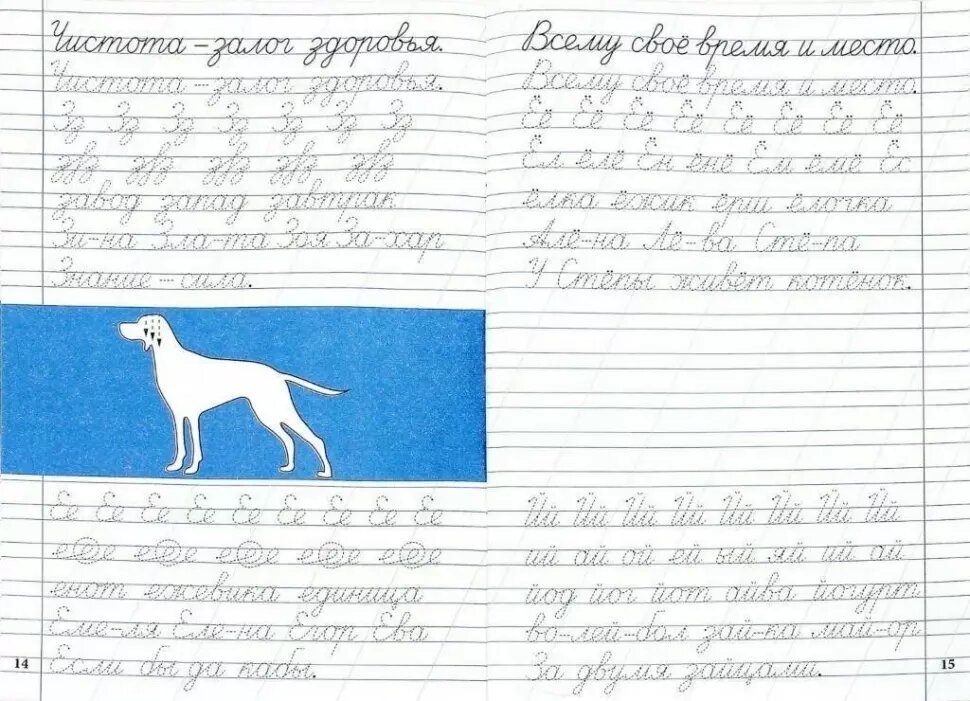 Чистота – залог здоровья.
Чистота – залог здоровья.
Зз Зз Зз Зз Зз Зз Зз
завод запад завтрак
Зи-на Зла-та Зоя За-хар
Знание – сила.
Ее Ее Ее Ее Ее Ее Ее Ее Ее
еее еее еее еее еее
енот ежевика единица
Еме-ля Еле-на Егор Ева
Если бы да кабы.
14
Всему своё время и место.
Всему своё время и место.
Ёё Ёё Ёё Ёё Ёё Ёё Ёё Ёё
Ёл елё Ён енё Ём ёмё Ёс
ёлка ёжик ёрш ёлочка
Алё-на Лё-ва Стё-па
У Стёпы живёт котёнок.
Йй Йй Йй Йй Йй Йй Йй Йй
ий ай ой ей ый яй ий ай
йод йог йот айва йогурт
во-лей-бол зай-ка май-ор
За двумя зайцами.
15